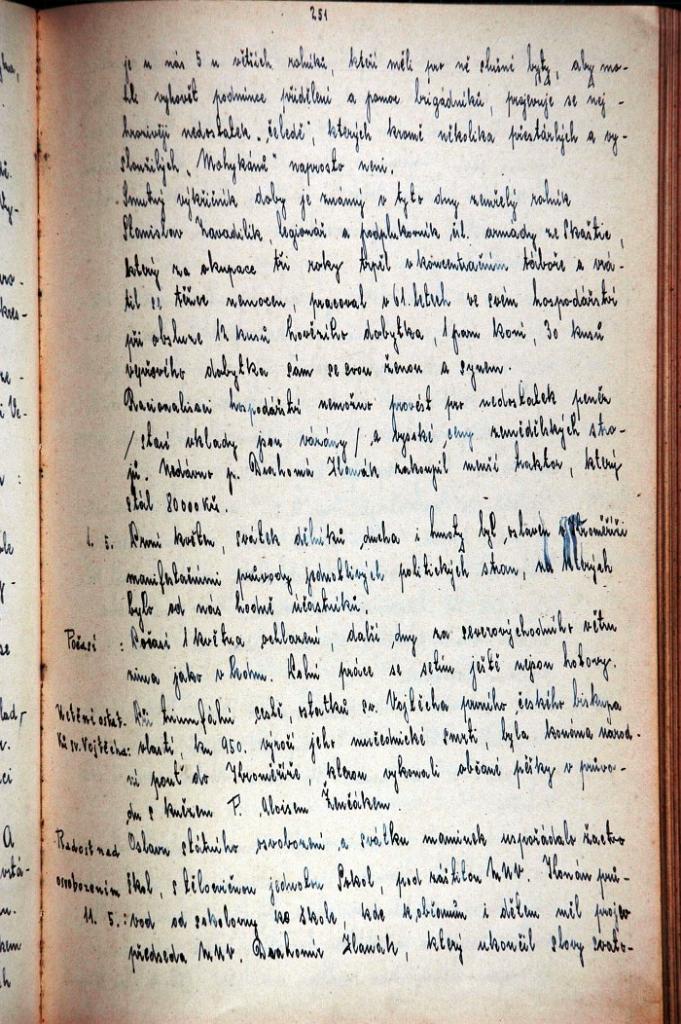 251
je u nás 5 u větších rolníků, kteří měli pro ně slušné byty, aby mo-
hli vyhovět podmínce přidělení a pomoc brigádníků, projevuje se nej-
horivěji nedostatek „čeledě", kterých kromě několika přestárlých a vy-
sloužilých „Mohykánů" naprosto není.
Smutný výkřičník doby je známý v tyto dny zemřelý rolník
Stanislav Zavadilík, legionář a podplukovník čsl. armady ze Skaštic,
který za okupace tři roky trpěl v koncentračním táboře a vrá-
til se těžce nemocen, pracoval v 61. letech ve svém hospodářství
při obsluze 12 kusů hovězího dobytka, 1 páru koní, 30 kusů
vepřového dobytka sám se svou ženou a synem.
Racionalisaci hospodářství nemožno provést pro nedostatek peněz
/staré vklady jsou vázány/ a vysoké ceny zemědělských stro-
jů. Nedávno p. Drahomír Hanák zakoupil menší traktor, který
stál 80000 Kčs.
1. 5. První květen, svátek dělníků ducha i hmoty byl oslaven v Kroměříži
manifestačními průvody jednotlivých politických stran, na kterých
bylo od nás hodně účastníků.
Počasí : Počasí 1 května ochlazení, další dny za severovýchodního větru
zima jako v lednu. Polní práce se setím ještě nejsou hotovy.
Uctění ostat- Při triumfální cestě, ostatků sv. Vojtěcha prvního českého biskupa
ků sv. Vojtěcha: vlastí, ku 950. výročí jeho mučednické smrti, byla konána národ-
ní pouť do Kroměříže, kterou vykonali občané pěšky v průvo-
du s knězem P. Aloisem Ženčákem.
Radost nad Oslavu státního osvobození a svátku maminek uspořádalo žactvo
osvobozením škol, s tělovičnou jednotou Sokol, pod záštitou M.N.V. Konán prů-
11. 5. : vod od sokolovny ke škole, kde k občanům i dětem měl projev
předseda M.N.V. Drahomír Hanák, který ukončil slovy svato-